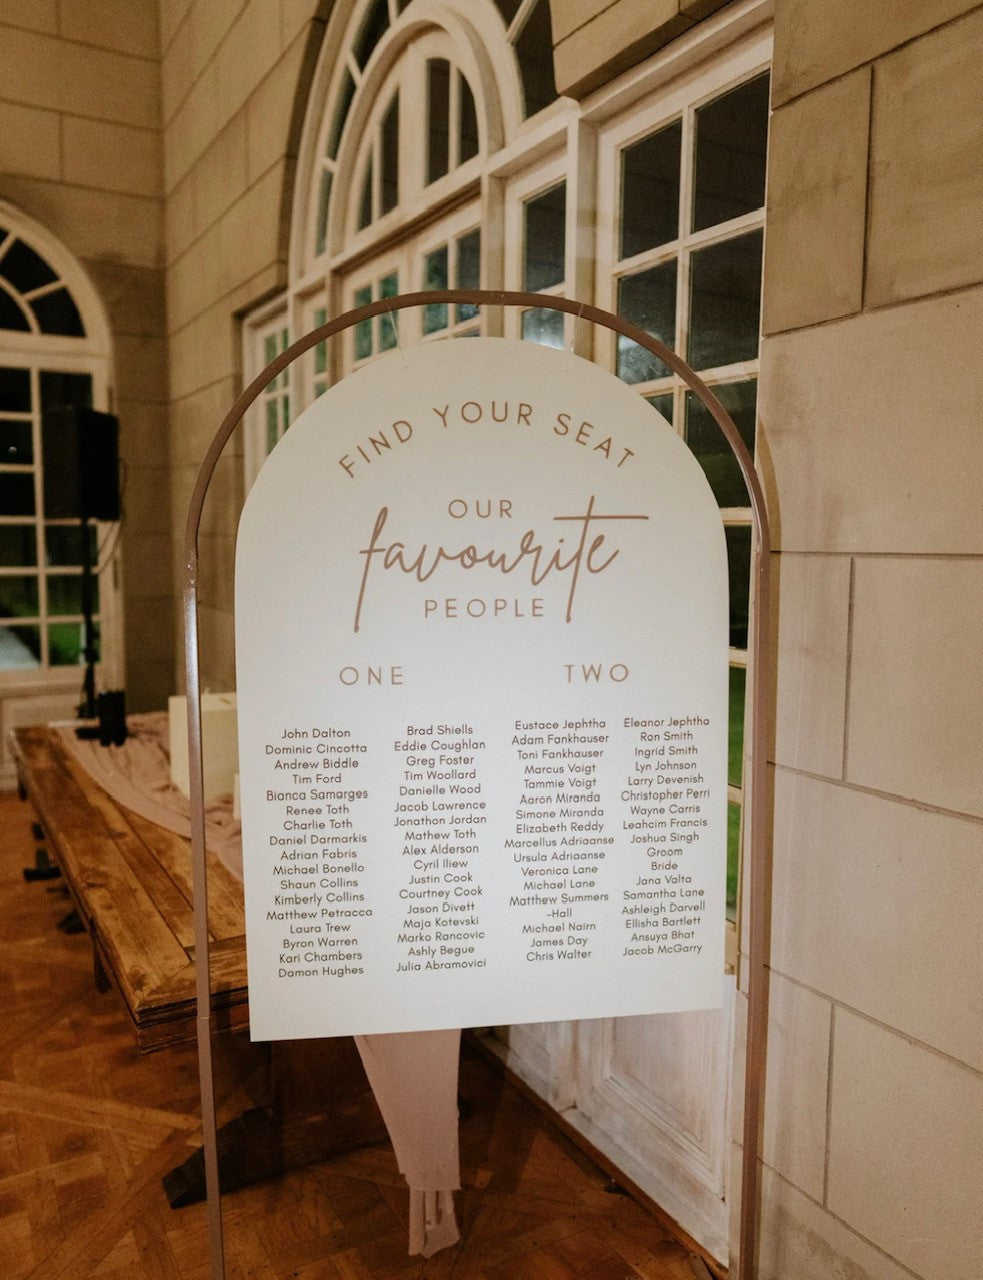 FIND YOUR SEAT
OUR
favourite
PEOPLE
ONE
John Dalton
Dominic Cincotta
Andrew Biddle
Tim Ford
Bianca Samarges
Renee Toth
Charlie Toth
Daniel Darmarkis
Adrian Fabris
Michael Bonello
Shaun Collins
Kimberly Collins
Matthew Petracca
Laura Trew
Byron Warren
Kari Chambers
Damon Hughes
Brad Shiells
Eddie Coughlan
Greg Foster
Tim Woollard
Danielle Wood
Jacob Lawrence
Jonathon Jordan
Mathew Toth
Alex Alderson
Cyril Iliew
Justin Cook
Courtney Cook
Jason Divett
Maja Kotevski
Marko Rancovic
Ashly Begue
Julia Abramovici
TWO
Eustace Jephtha
Adam Fankhauser
Toni Fankhauser
Marcus Voigt
Tammie Voigt
Aaron Miranda
Simone Miranda
Elizabeth Reddy
Marcellus Adriaanse
Ursula Adriaanse
Veronica Lane
Michael Lane
Matthew Summers
-Hall
Michael Nairn
James Day
Chris Walter
Eleanor Jephtha
Ron Smith
Ingrid Smith
Lyn Johnson
Larry Devenish
Christopher Perri
Wayne Carris
Leahcim Francis
Joshua Singh
Groom
Bride
Jana Valta
Samantha Lane
Ashleigh Darvell
Ellisha Bartlett
Ansuya Bhat
Jacob McGarry